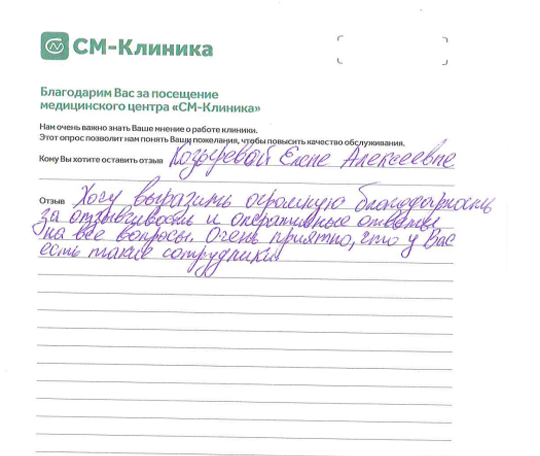 СМ-Клиника
Благодарим Вас за посещение
медицинского центра «СМ-Клиника»
Нам очень важно знать Ваше мнение о работе клиники.
Этот опрос позволит нам понять Ваши пожелания, чтобы повысить качество обслуживания.
Кому Вы хотите оставить отзыв Козыревой Елене Алексеевне
Отзыв Хочу выразить огромную благодарность
за отзывчивость и оперативные ответы
на все вопросы. Очень приятно, что у Вас
есть такие сотрудники